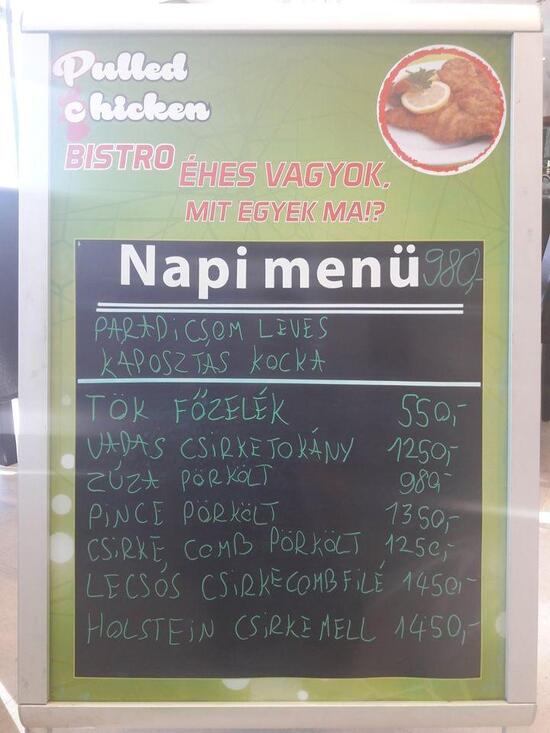 Pulled
chicken
BISTRO ÉHES VAGYOK,
MIT EGYEK MA!?
Napi menü 980,-
PARADiCSOM LEVES
KÁPOSZTÁS KOCKA
TÖK FŐZELÉK 550,-
VADAS CSiRKETOKÁNY 1250,-
ZÚZA PÖRKÖLT 980,-
PiNCE PÖRKÖLT 1350,-
CSiRKE COMB PÖRKÖLT 1250,-
LECSÓS CSiRKECOMBFiLÉ 1450,-
HOLSTEiN CSiRKEMELL 1450,-